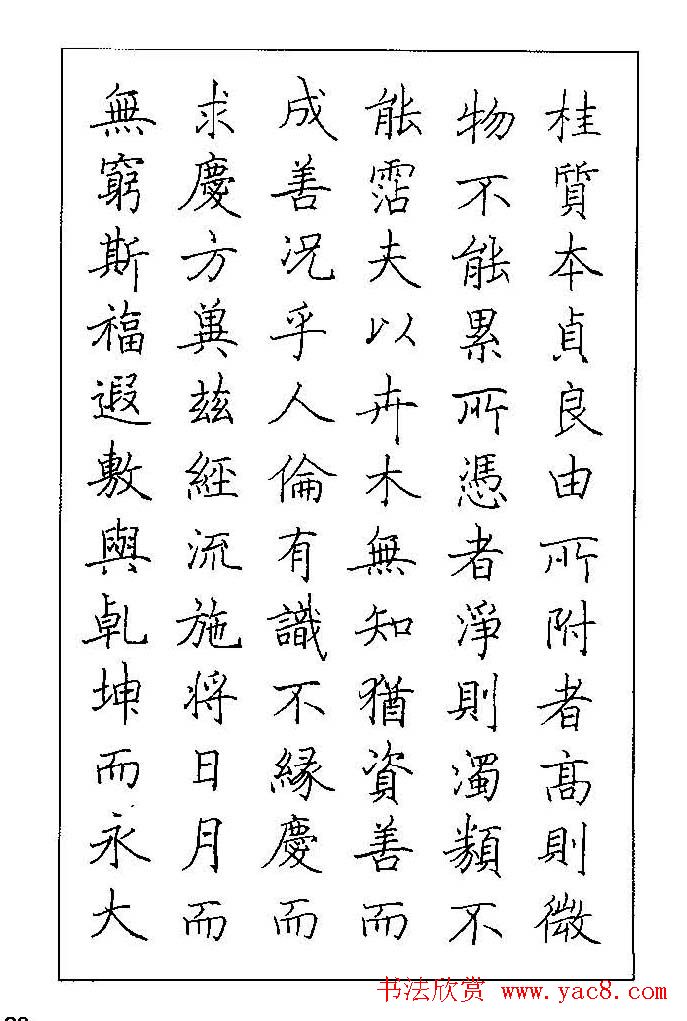 桂質本貞良由所附者高則微
物不能累所憑者淨則濁類不
能霑夫以卉木無知猶資善而
成善况乎人倫有識不緣慶而
求慶方冀茲經流施将日月而
無窮斯福遐敷與乹坤而永大
书法欣赏 www.yac8.com